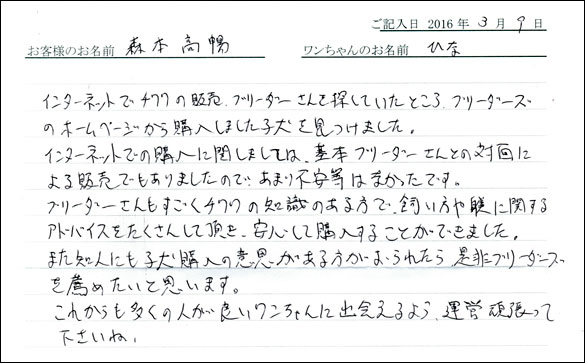 ご記入日 2016 年 3 月 9 日
お客様のお名前 森本高暢 ワンちゃんのお名前 ひな
インターネットでチワワの販売、ブリーダーさんを探していたところ、ブリーダーズ
のホームページから購入しました子犬を見つけました。
インターネットでの購入に関しましては、基本ブリーダーさんとの対面に
よる販売でもありましたので、あまり不安等はなかったです。
ブリーダーさんもすごくチワワの知識のある方で、飼い方や躾に関する
アドバイスをたくさんして頂き、安心して購入することができました。
また知人にも子犬購入の意思がある方がおられたら、是非ブリーダーズ
を薦めたいと思います。
これからも多くの人が良いワンちゃんに出会えるよう、運営頑張って
下さいね。